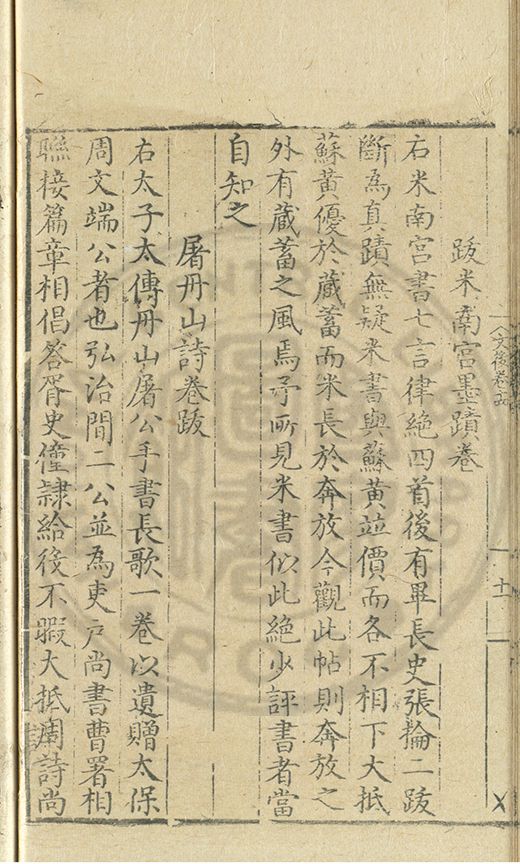 跋米南宮墨蹟卷
右米南宮書七言律絕四首後有畢長史張掄二跋
斷為真蹟無疑米書與蘇黃並價而各不相下大抵
蘇黃優於藏蓄而米長於奔放今觀此帖則奔放之
外有藏蓄之風焉予所見米書似此絕少評書者當
自知之
屠丹山詩卷跋
右太子太傅丹山屠公手書長歌一卷以遺贈太保
周文端公者也弘治間二公並為吏戶尚書曹署相
聯接篇章相倡答胥史僮隸給役不暇大抵周詩尚
十一